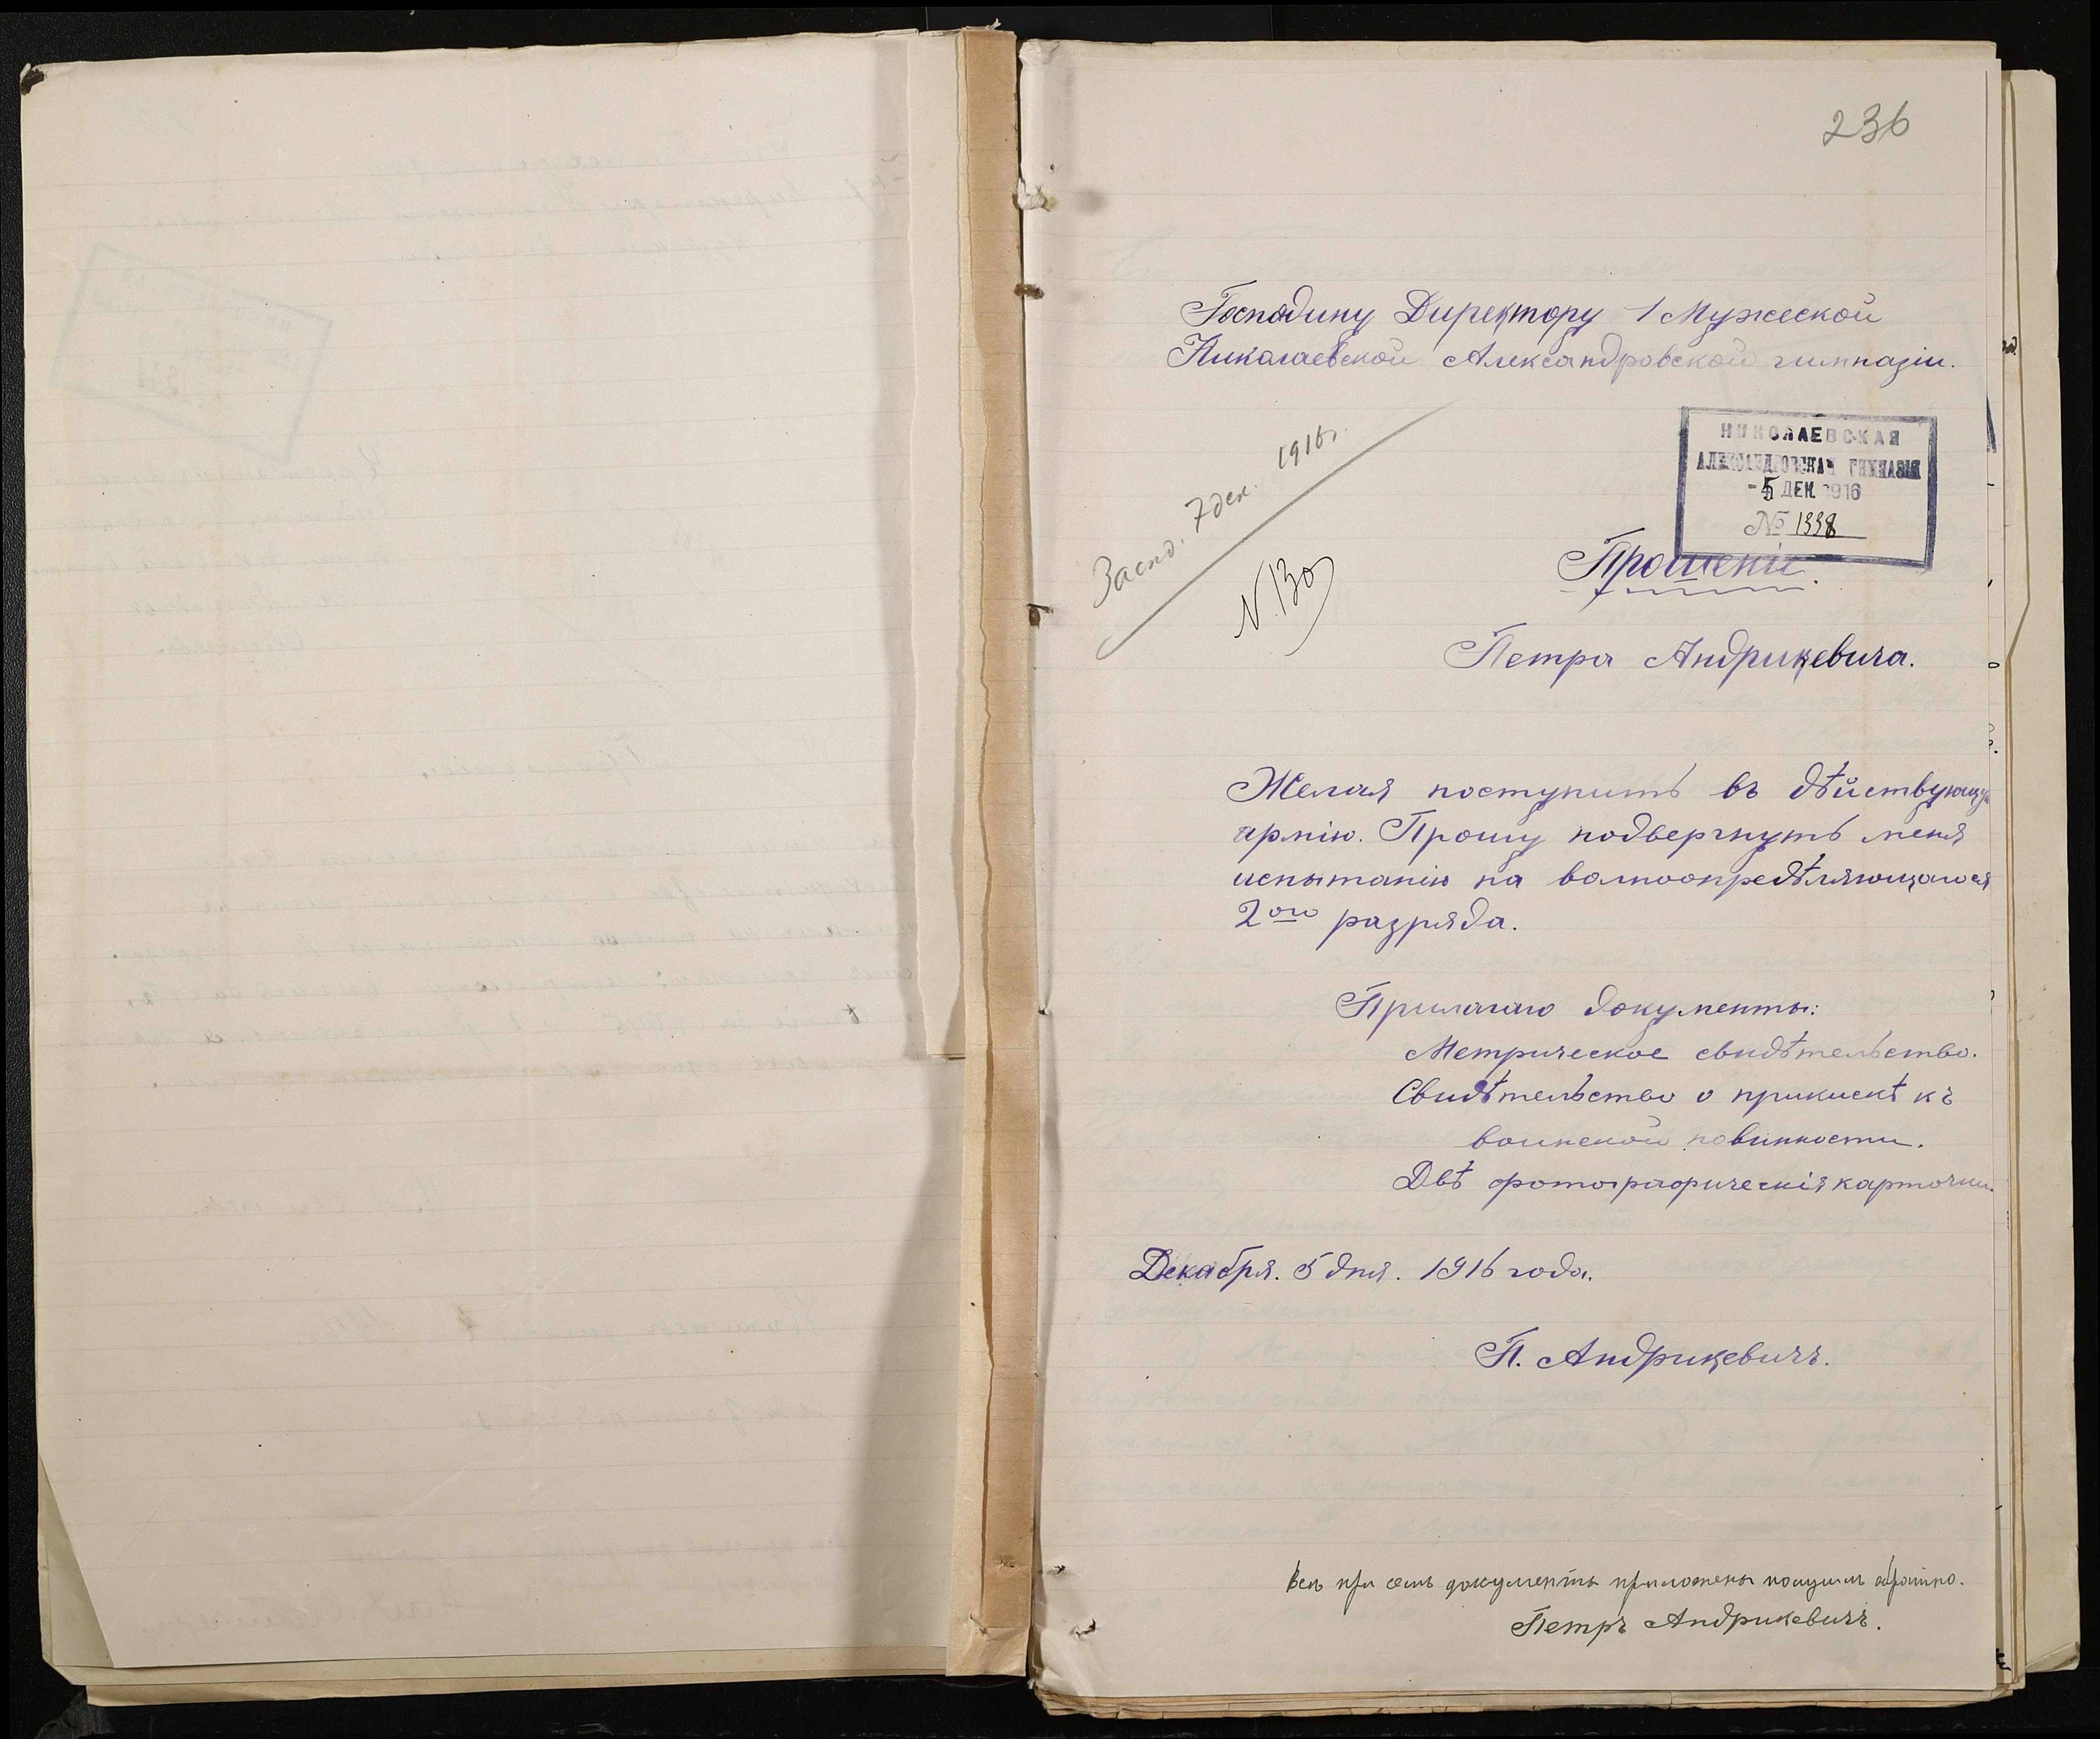 236
Господину Директору 1 Мужеской
Николаевской Александровской гимназіи.
НИКОЛАЕВСКАЯ
АЛЕКСАНДРОВСКАЯ ГИМНАЗІЯ
- 5 ДЕК 1916
№ 1338
Засѣд. 7 дек. 1916 г.
N. 130
Прошеніе.
Петра Андрикевича.
Желая поступить въ дѣйствующую
армію. Прошу подвергнуть меня
испытанію на вольноопредѣляющагося
2ого разряда.
Прилагаю документы:
Метрическое свидѣтельство.
Свидѣтельство о припискѣ къ
воинской повинности.
Двѣ фотографическія карточки.
Декабря. 5 дня. 1916 года.
П. Андрикевичъ.
Всѣ при семъ документы приложены получилъ обратно.
Петръ Андрикевичъ.